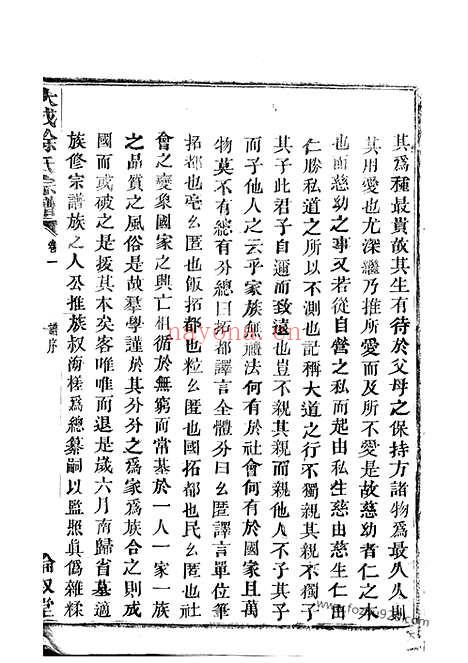 其爲種最貴故其生有待於父母之保持方諸物爲最久久則
其用愛也尤深繼乃推所愛而及所不愛是故慈幼者仁之本
也而慈幼之事又若從自營之私而起由私生慈由慈生仁由
仁勝私道之所以不測也記稱大道之行不獨親其親不獨子
其子此君子自邇而致遠也豈不親其親而親他人不子其子
而子他人之云乎家族無禮法何有於社會何有於國家且萬
物莫不有分總曰拓都譯言全體分曰幺匿譯言單位筆
拓都也毫幺匿也飯拓都也粒幺匿也國拓都也民幺匿也社
會之變象國家之興亡相循於無窮而常基於一人一家一族
之品質之風俗是故羣學謹於其分分之爲家爲族合之則成
國而或破之是援其本矣客唯唯而退是歲六月南歸省墓適
族修宗譜族之人公推族叔 樣爲總纂嗣以監照眞僞雜糅
徐氏宗譜
卷一
譜序
倫敘堂
nayona.cn